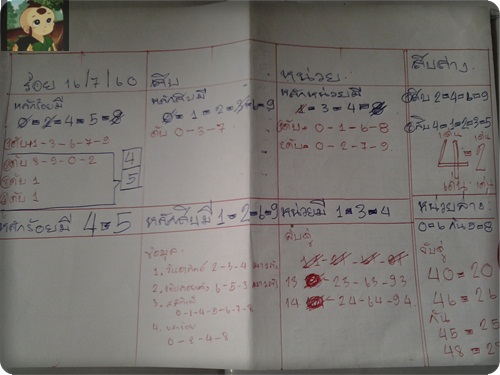 ร้อย 16/7/60
สิบ
หน่วย
สิบล่าง
หลักร้อยมี
0=2=4=5=8
ดับ 1-3-6-7-9
ดับ 8-9-0-2
ดับ 1
ดับ 1
4
5
หลักสิบมี
0=1=2=3=6=9
ดับ 0-3-7
หลักหน่วยมี
1=3=4=8
ดับ 0-1-6-8
ดับ 0-2-7-9
สิบ 2=4=6=9
สิบ 4=1=2=3=5
เด่น เด่น
4=2
เด่น เด่น
หลักร้อยมี 4=5
หลักสิบมี 1=2=6=9
หน่วยมี 1=3=4
หน่วยล่าง
0=6 กับ 5=8
ข้อมูล
1. 2-3-4
2. 6-5-3
3.
0-1-4-5-6-7-8
4.
0-1-4-8
จับคู่
13 23-63-93
14 24-64-94
จับคู่
40=20
46=26
กับ
45=25
48=2